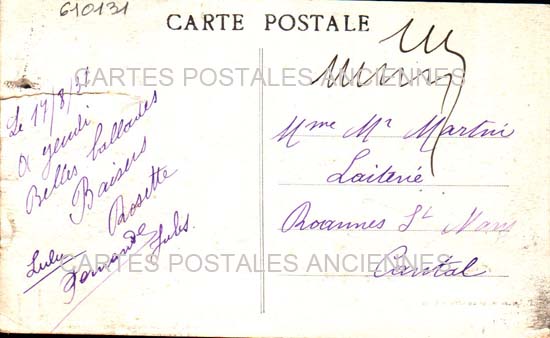 610131
CARTE POSTALE
CARTES POSTALES ANCIENNES
Le 17/8/31
A jeudi
Belles ballades
Baisers
Rosette
Lulu
Fernande
Jules.
Mme Mr Martin
Laiterie
Roannes St Mary
Cantal
CARTES POSTALES ANCIENNES